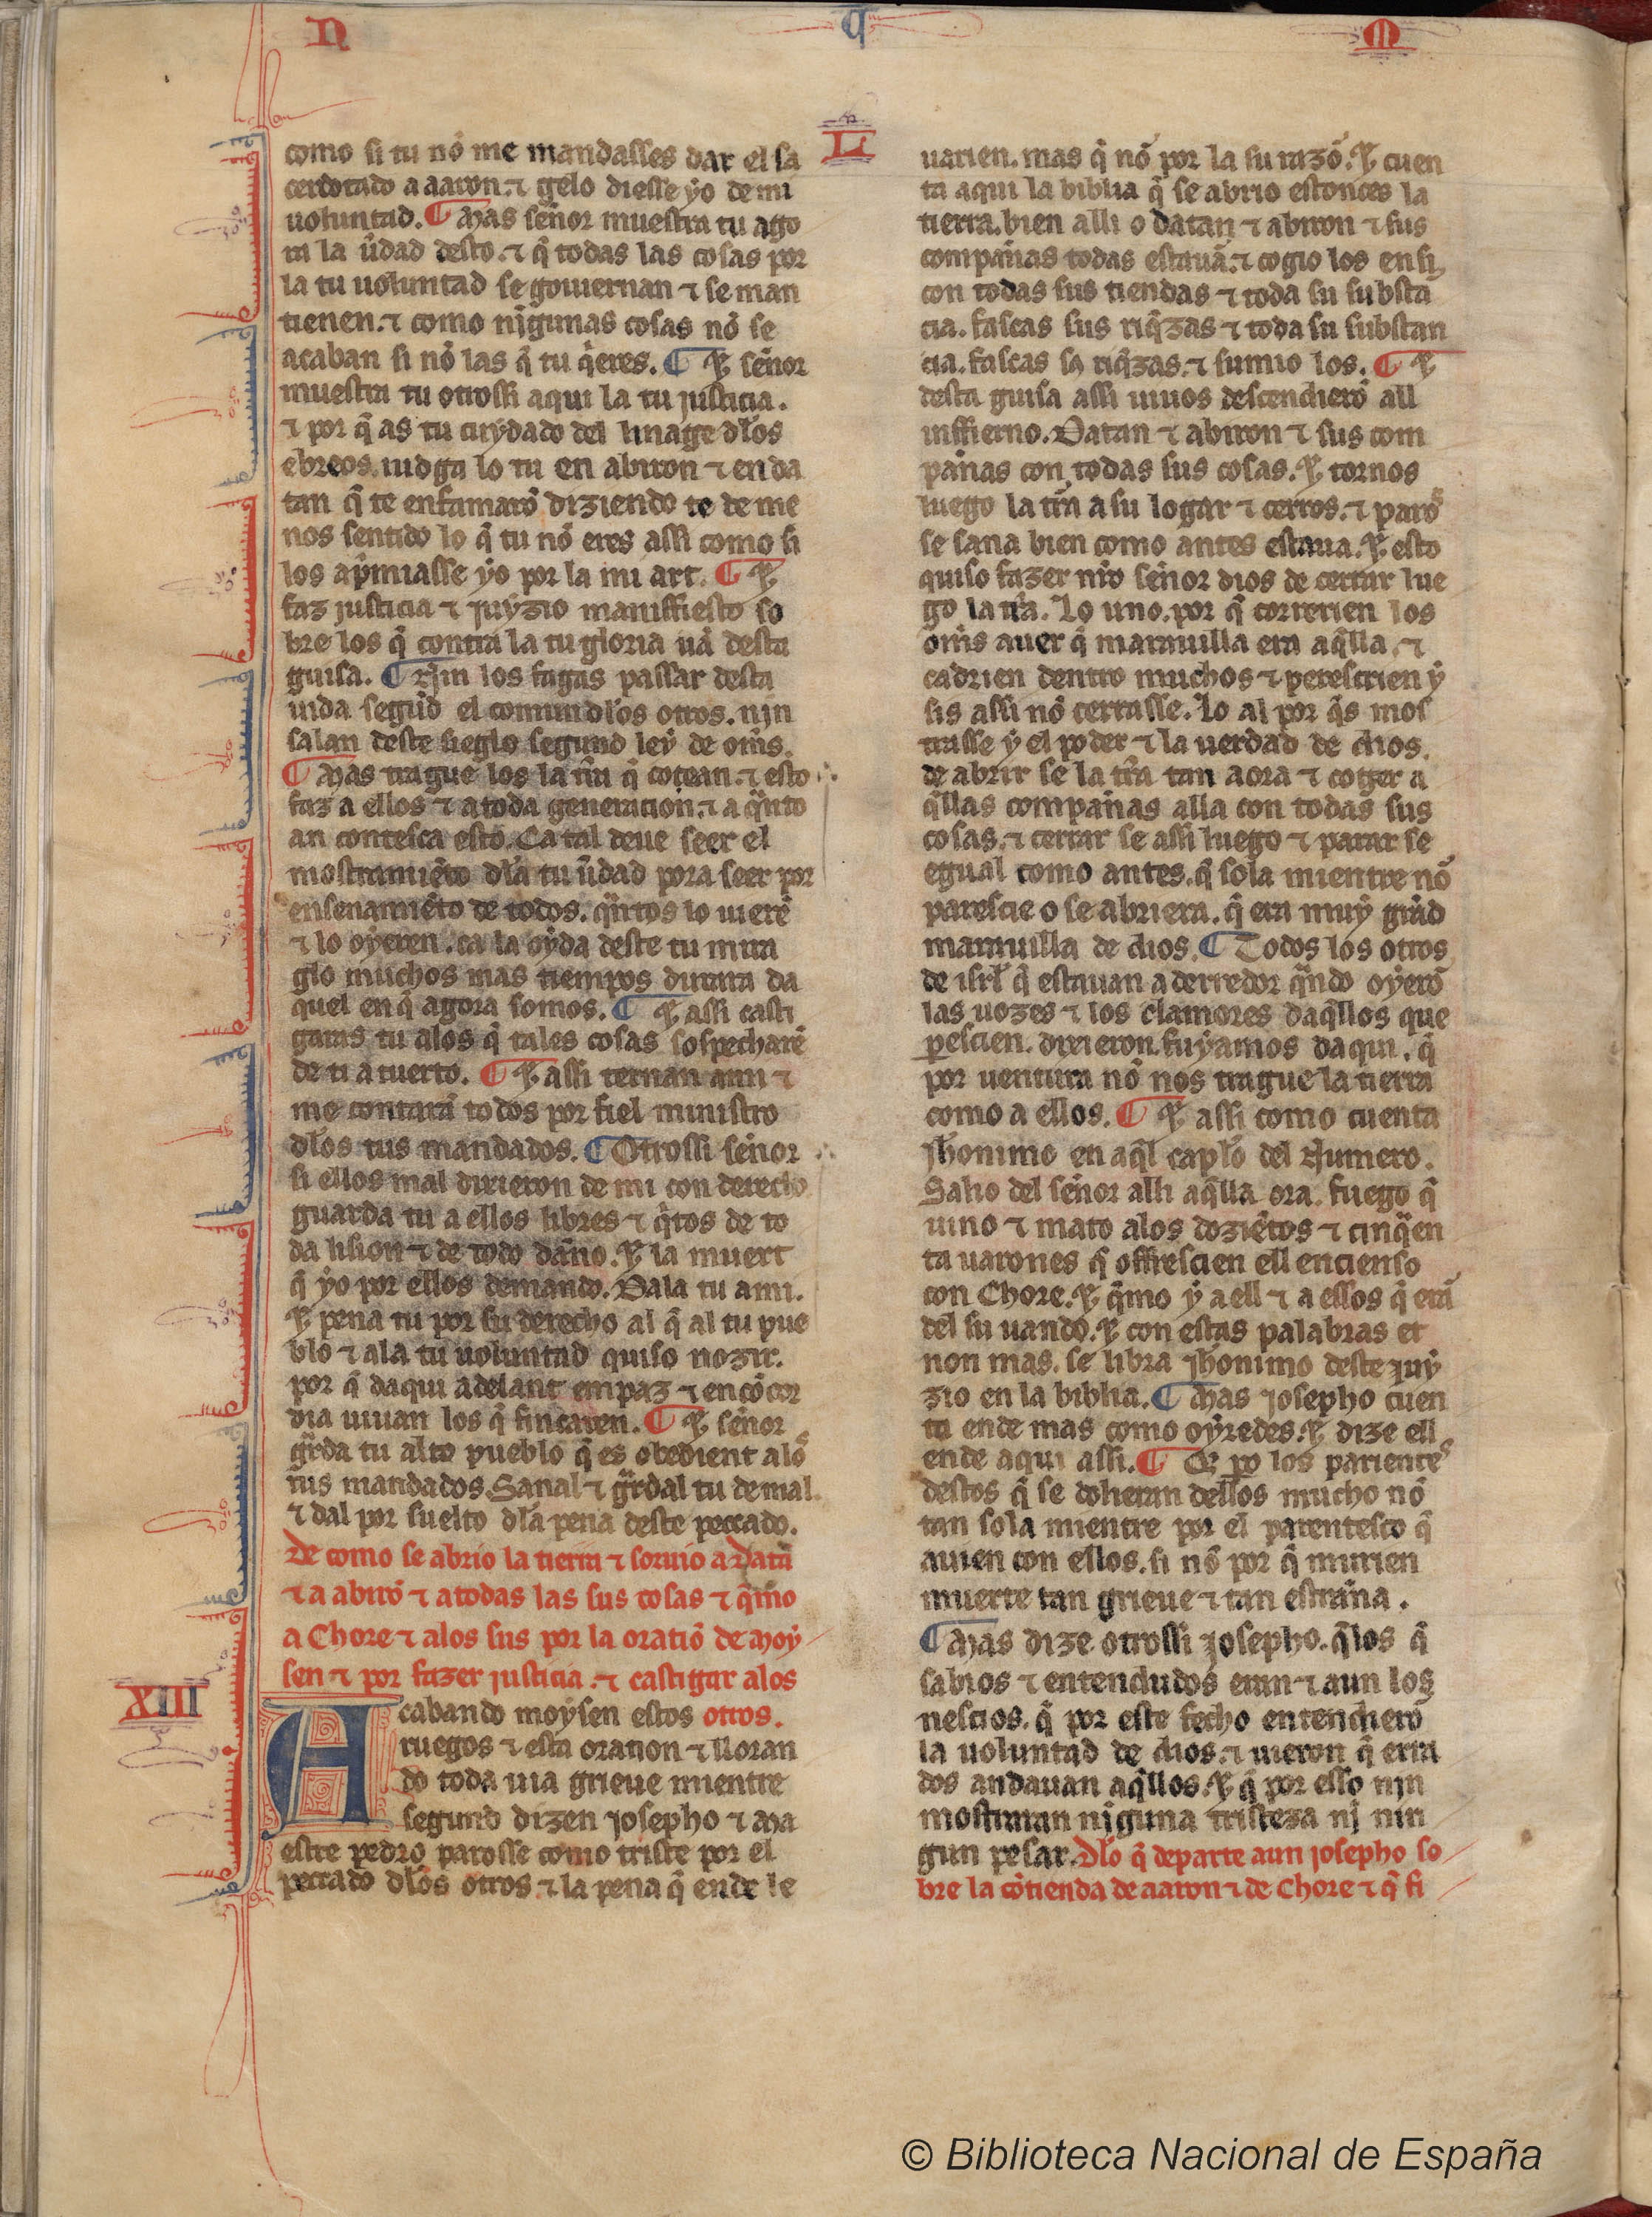 N
ꝗ
M
L
como si tu nõ me mandasses dar el sa
cerdotado a aaron. ⁊ gelo diesse yo de mi
uoluntad. ¶ Mas señor muestra tu ago
ra la ũdad desto. ⁊ q̃ todas las cosas por
la tu uoluntad se gouiernan ⁊ se man
tienen. ⁊ como nĩgunas cosas nõ se
acaban si nõ las q̃ tu q̃eres. ¶ Et señor
muestra tu otrossi aqui la tu justicia.
⁊ por q̃ as tu cuydado del linage dlos
ebreos. iudga lo tu en abiron ⁊ en da
tan q̃ te enfamarõ diziendo te de me
nos sentido lo q̃ tu nõ eres assi como si
los apmiasse yo por la mi art. ¶ Et
faz justicia ⁊ juyzio manifiesto so
bre los q̃ contra la tu gloria uã desta
guisa. ¶ Nin los fagas passar desta
uida segũd el comun dlos otros. njn
salan deste sieglo segund ley de om̃s.
¶ Mas trague los la tr̃ra q̃ cotean. ⁊ esto
faz a ellos ⁊ a toda generation. ⁊ a qñto
an contesca esto. Ca tal deue seer el
mostramiẽto dla tu ũdad pora seer por
ensenamiẽto de todos. qñtos lo uierẽ
⁊ lo oyeren. ca la oyda deste tu mira
glo muchos mas tiempos durara da
quel en q̃ agora somos. ¶ Et assi casti
garas tu alos q̃ tales cosas sospecharẽ
de ti a tuerto. ¶ Et assi ternan aun ⁊
me contarã todos por fiel ministro
dlos tus mandados. ¶ Otrossi señor
si ellos mal dixieron de mi con derecho
guarda tu a ellos libres ⁊ q̃tos de to
da lision ⁊ de todo daño. Et la muert
q̃ yo por ellos demando. Dala tu a mi.
Et pena tu por su derecho al q̃ al tu pue
blo ⁊ ala tu uoluntad quiso nozir.
por q̃ daqui adelant em paz ⁊ en cõcor
dia uiuan los q̃ fincaren. ¶ Et señor
gr̃da tu alto pueblo q̃ es obedient alos
tus mandados. Sanal ⁊ gr̃dal tu de mal.
⁊ dal por suelto dla pena deste peccado.
De como se abrio la tierra ⁊ soruio a Datã
⁊ a abirõ ⁊ a todas las sus cosas ⁊ q̃mo
a Chore ⁊ alos sus por la oratiõ de Moy
sen ⁊ por fazer justicia. ⁊ castigar alos
XIII
Acabando moysen estos otros.
ruegos ⁊ esta oration ⁊ lloran
do toda uia grieue mientre
segund dizen josepho ⁊ Ma
estre pedro parosse como triste por el
peccado dlos otros. ⁊ la pena q̃ ende le
uarien. mas q̃ nõ por la su razõ. Et cuen
ta aqui la biblia q̃ se abrio estonces la
tierra. bien alli o datan ⁊ abiron ⁊ sus
compañas todas estauã. ⁊ cogio los en si
con todas sus tiendas ⁊ toda su substã
cia. fascas sus riq̃zas ⁊ toda su substan
cia. fascas ss riq̃zas. ⁊ sumio los. ¶ Et
desta guisa assi uiuos descendierõ all
inffierno. Datan ⁊ abiron ⁊ sus com
pañas con todas sus cosas. Et tornos
luego la tr̃ra a su logar ⁊ cerros. ⁊ paros
se sana bien como antes estaua. Et esto
quiso fazer nr̃o señor dios de cerrar lue
go la tr̃ra. Lo uno. por q̃ correrien los
om̃s a uer q̃ marauilla era aq̃lla. ⁊
cadrien dentro muchos ⁊ perescrien y
sis assi nõ cerrasse. Lo al por q̃s mos
trasse y el poder ⁊ la uerdad de dios.
de abrir se la tr̃ra tan aora ⁊ coger a
q̃llas compañas alla con todas sus
cosas. ⁊ cerrar se assi luego ⁊ parar se
egual como antes. q̃ sola mientre nõ
parescie o se abriera. q̃ era muy grãd
marauilla de dios. ¶ Todos los otros
de isrl̃ q̃ estauan a derredor qñdo oyerõ
las uozes ⁊ los clamores daq̃llos que
pescien. dixieron. fuyamos daqui. q̃
por uentura nõ nos trague la tierra
como a ellos. ¶ Et assi como cuenta
jh̃onimo en aq̃l capl̃o del Numero.
Salio del señor alli aq̃lla ora. fuego q̃
uino ⁊ mato alos doziẽtos ⁊ cinq̃en
ta uarones q̃ offrescien ell encienso
con Chore. Et q̃mo y a ell ⁊ a essos q̃ erã
del su uando. Et con estas palabras et
non mas. se libra jh̃onimo deste juy
zio en la biblia. ¶ Mas josepho cuen
ta ende mas como oyredes. Et dize ell
ende aqui assi. ¶ Q̃ po los parientes
destos q̃ se dolieran dellos mucho nõ
tan sola mientre por el parentesco q̃
auien con ellos. si nõ por q̃ murien
muerte tan grieue ⁊ tan estraña.
¶ Mas dize otrossi josepho. q̃los q̃
sabios ⁊ entendudos eran ⁊ aun los
nescios. q̃ por este fecho entendierõ
la uoluntad de dios. ⁊ uieron q̃ erra
dos andauan aq̃llos. Et q̃ por esso njn
mostrauan nĩguna tristeza nj nin
gun pesar. Dlo q̃ departe aun josepho so
bre la cõtienda de aaron ⁊ de Chore ⁊ q̃ fi
© Biblioteca Nacional de España